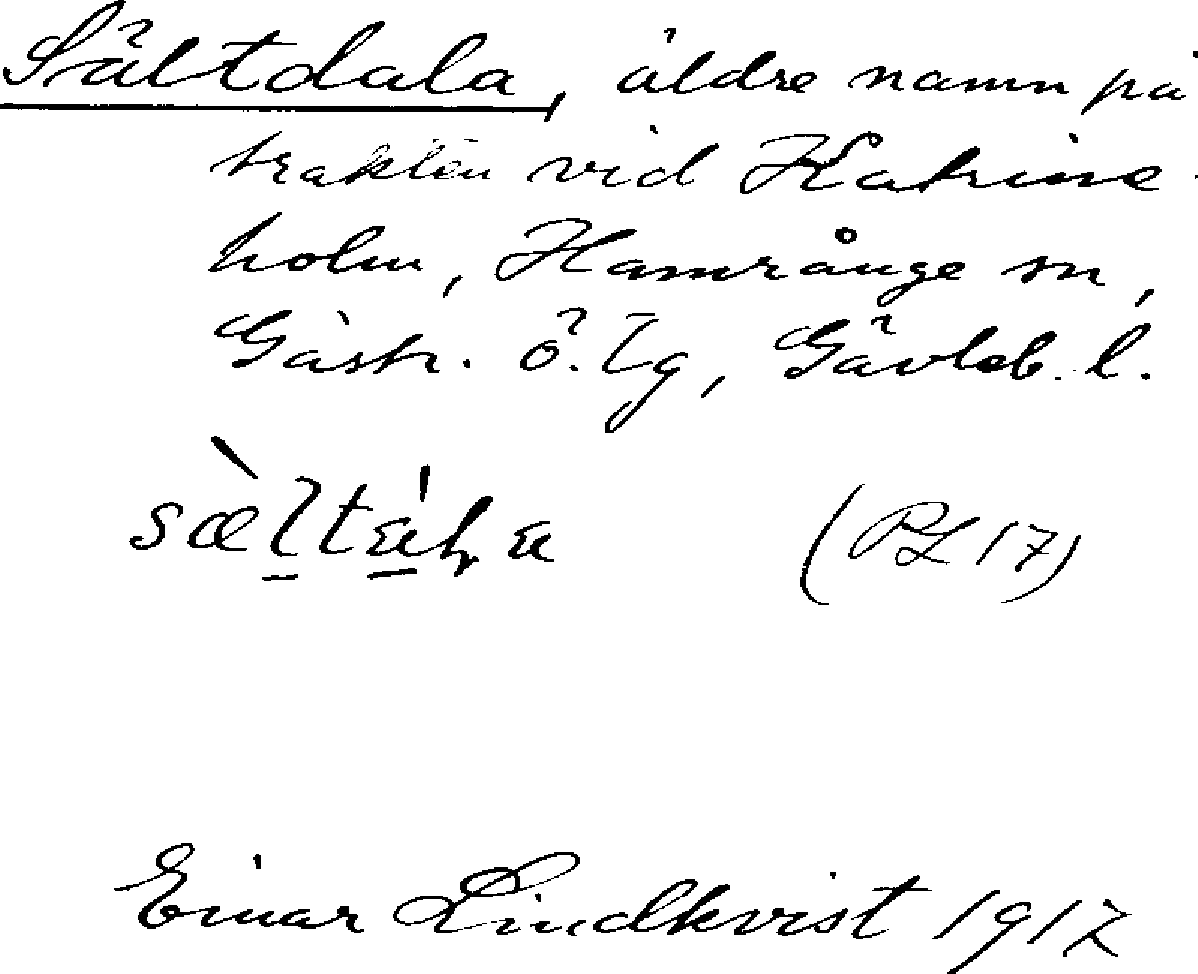 Sältdala, äldre namn på
trakten vid Katrine-
holm, Hamrånge sn,
Gästr. ö. tg, Gävleb. l.
(PL 17)
Einar Lindkvist 1917